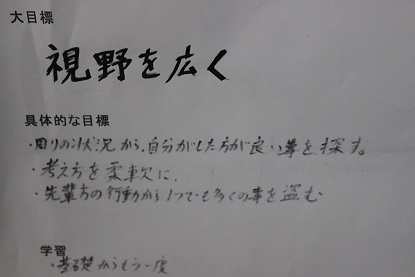 大目標
視野を広く
具体的な目標
・周りの状況から、自分がした方が良い事を探す。
・考え方を柔軟に。
・先輩方の行動から1つでも多くの事を盗む
学習
・基礎からもう一度